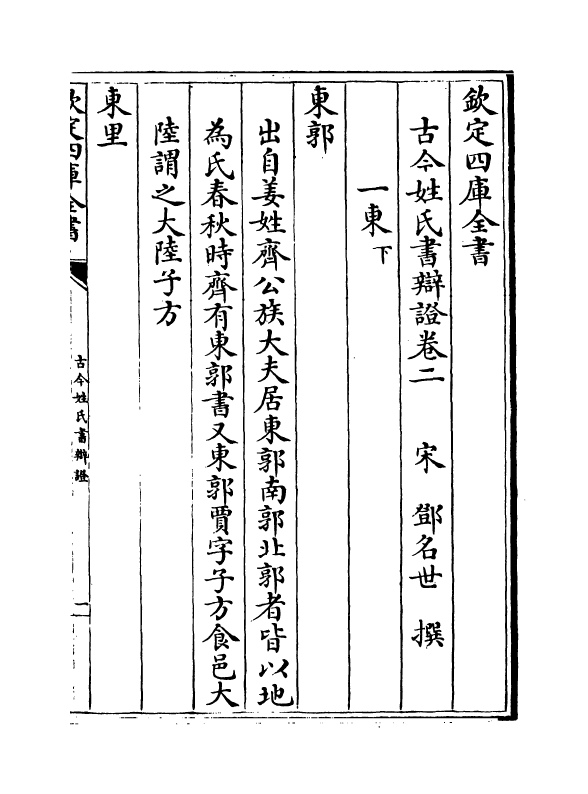 欽定四庫全書
古今姓氏書辯證卷二 宋 鄧名世 撰
一東下
東郭
出自姜姓齊公族大夫居東郭南郭北郭者皆以地
為氏春秋時齊有東郭書又東郭賈字子方食邑大
陸謂之大陸子方
東里
欽定四庫全書
古今姓氏書辯證